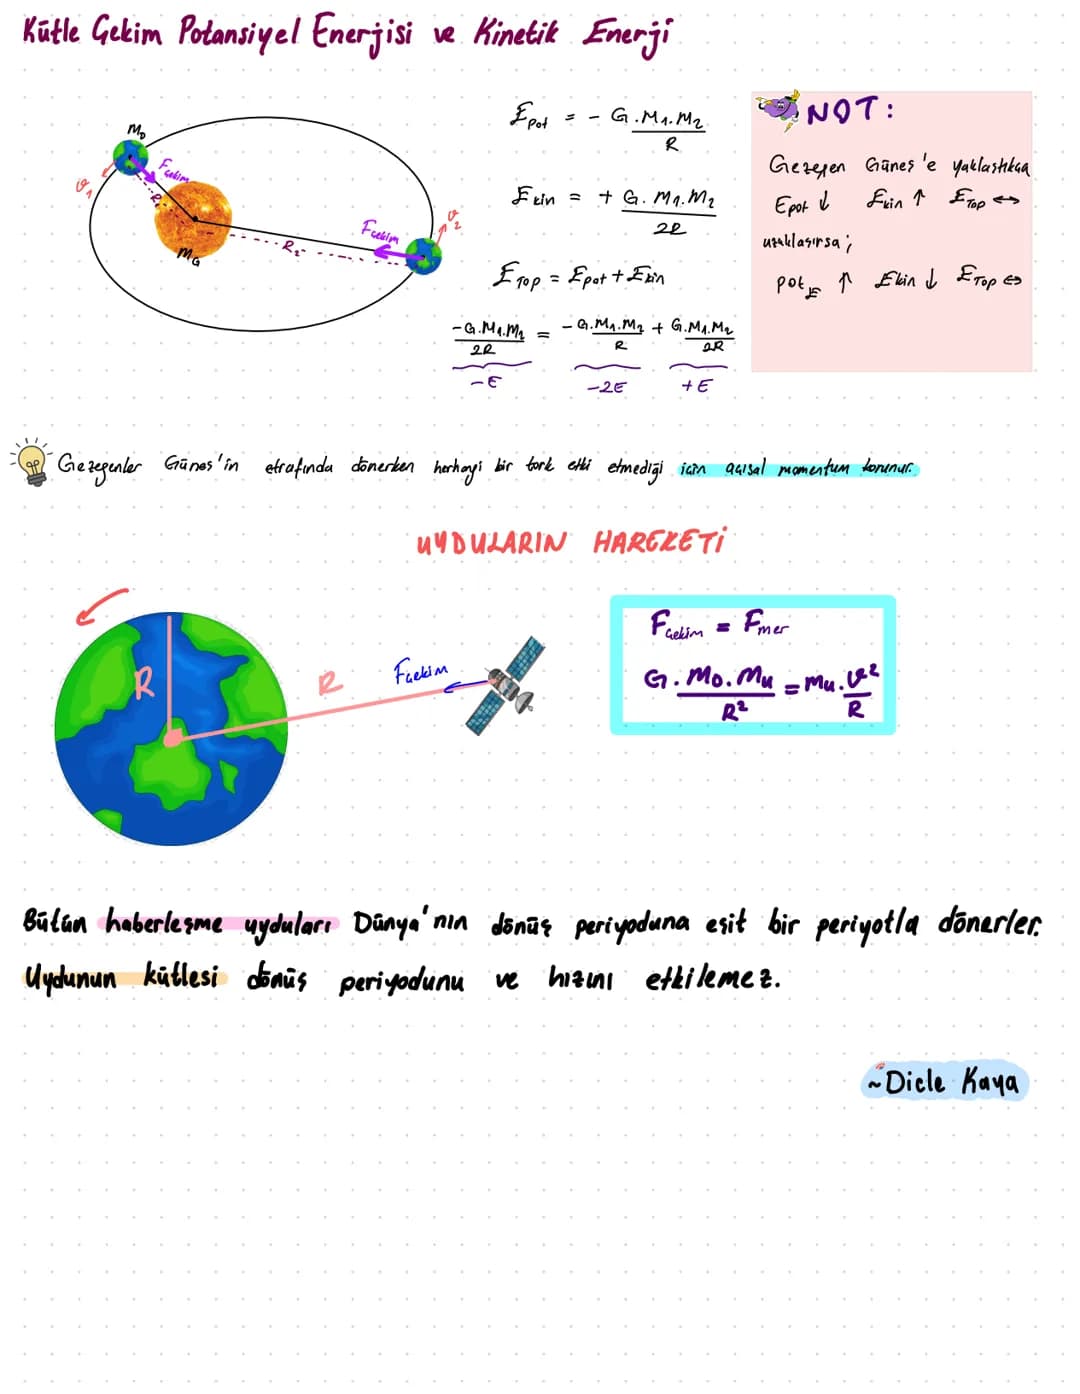 Kütle Çekim Potansiyel Enerjisi ve Kinetik Enerji
MD
Fçekim
R1
MG
R2
Fçekim
ϑ2
Epot = - G.M1.M2
R
Ekin = + G.M1.M2
2R
ETop = Epot + Ekin
-G.M1.M2 = -G.M1.M2 + G.M1.M2
2R R 2R
-E -2E +E
NOT:
Gezegen Güneş'e yaklaştıkça
Epot ↓ Ekin ↑ ETop ↔
uzaklaşırsa;
potE ↑ Ekin ↓ ETop ↔
Gezegenler Güneş'in etrafında dönerken herhangi bir tork etki etmediği için açısal momentum korunur.
UYDULARIN HAREKETİ
R
R
Fçekim
Fçekim = Fmer
G.MD.Mu = Mu.ϑ²
R² R
Bütün haberleşme uyduları Dünya'nın dönüş periyoduna eşit bir periyotla dönerler.
Uydunun kütlesi dönüş periyodunu ve hızını etkilemez.
~Dicle Kaya